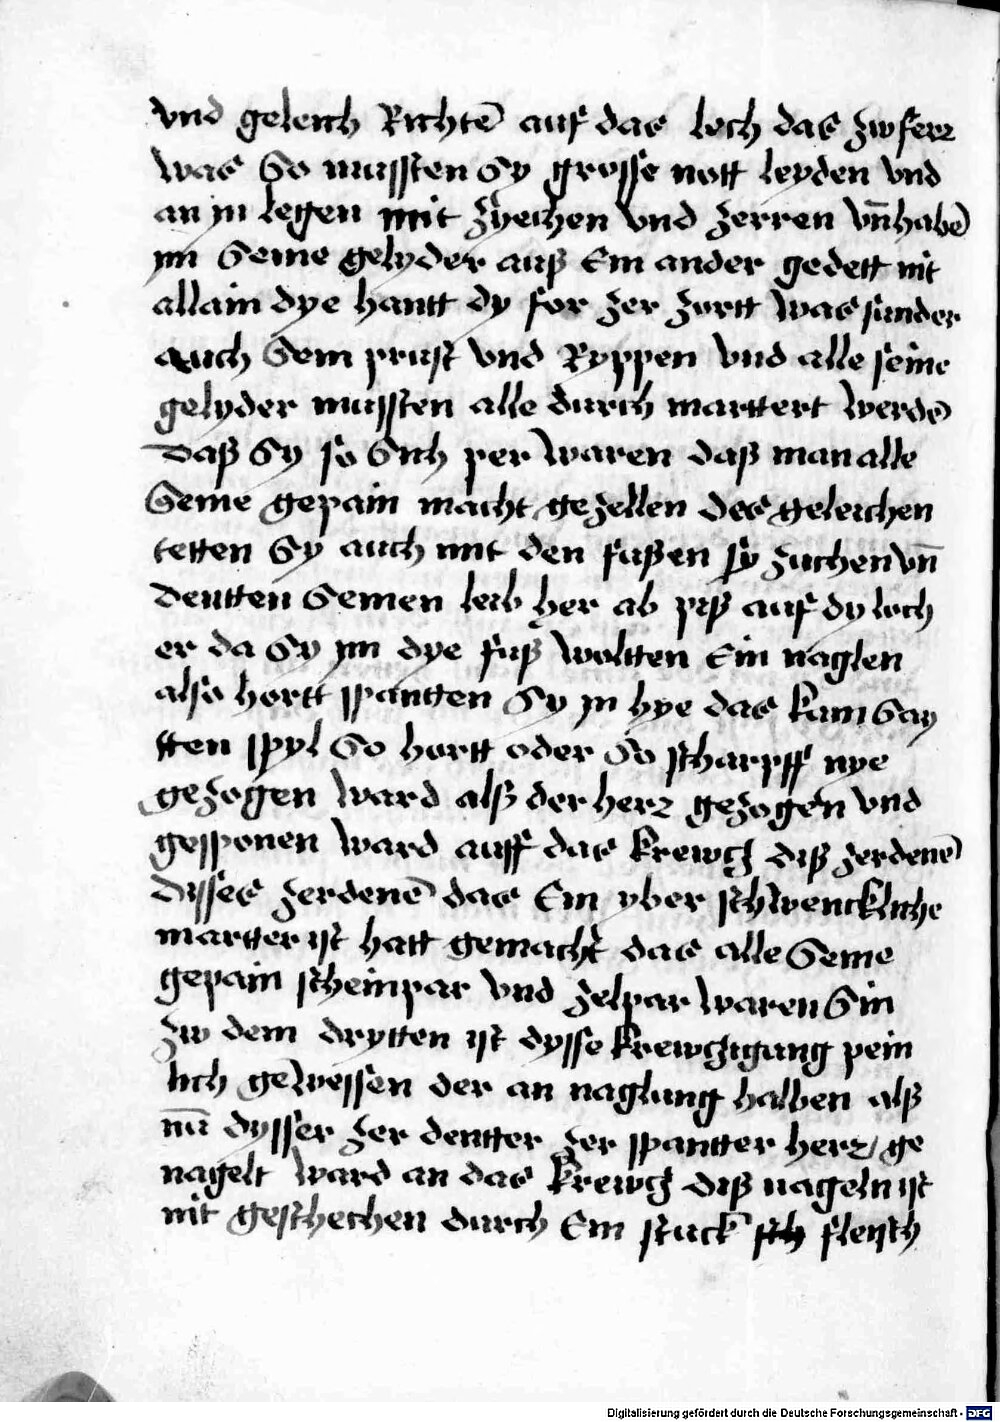 vnd geleich Richtē auf das loch das zw ferr
was So mussten Sy grosse nott leyden vnd
an jn legen mit zyechen vnd zerren vn̄ habē
jm Seine gelyder auß Ein ander gedett nit
allain dye hantt dy for zer zertt was sunder
auch Sein prust vnd Ryppen vnd alle seine
gelyder mussten alle durch marttert werdē
Daß Sy so Sich per waren daß man alle
Seine gepain macht gezellen des geleichen
tetten Sy auch mit den fußen sy zuchen vn̄
dentten Seinen leib her ab piß auf dy loch
er da Sy jm dye fuß woltten Ein naglen
also hortt spantten Sy jn hye das kain Say
tten spyl So hortt oder So scharpff nye
gezogen ward alß der herr gezogen vnd
gesponen ward auff das krewcz diß zerdenē
Disses zerdenē das Ein yber schwenckliche
martter ist hatt gemacht das alle Seine
gepain scheinpar vnd zelpar waren Sin
Zw dem drytten ist dysse krewczigung pein
lich gewessen der an naglung halben alß
nū dysser zer dentter zer spantter herr ge
nagelt ward an das krewcz diß nageln ist
nit geschechen durch Ein stuck sch fleisch
Digitalisierung gefördert durch die Deutsche Forschungsgemeinschaft - DFG